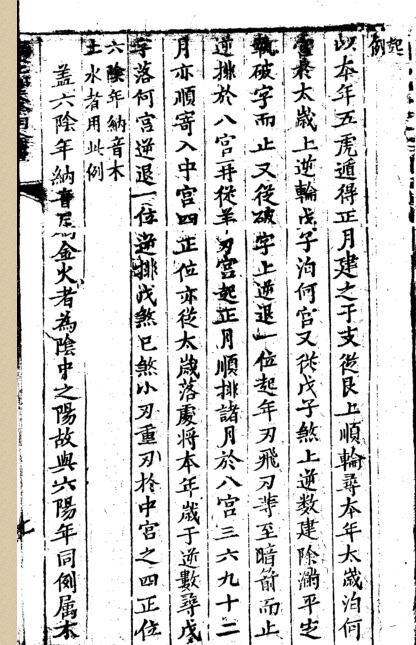 起例
以本年五虎遁得正月建之干支從艮上順輪尋本年太歲泊何
宮於太歲上逆輪戊子泊何宮又從戊子煞上逆数建除满平㝎
執破字而止又從破字上逆退一位起年刃飛刃䓁至暗箭而止
逆排於八宮再從羊刃宮起正月順排諸月於八宮三六九十二
月亦順寄入中宮四正位亦從太歲落處將本年歲干逆數尋戊
字落何宮逆退一位逆排戊煞已煞小刃重刃於中宮之四正位
六陰年納音木
土水者用此例
盖六陰年納音屬金火者為陰中之陽故與六陽年同例属木